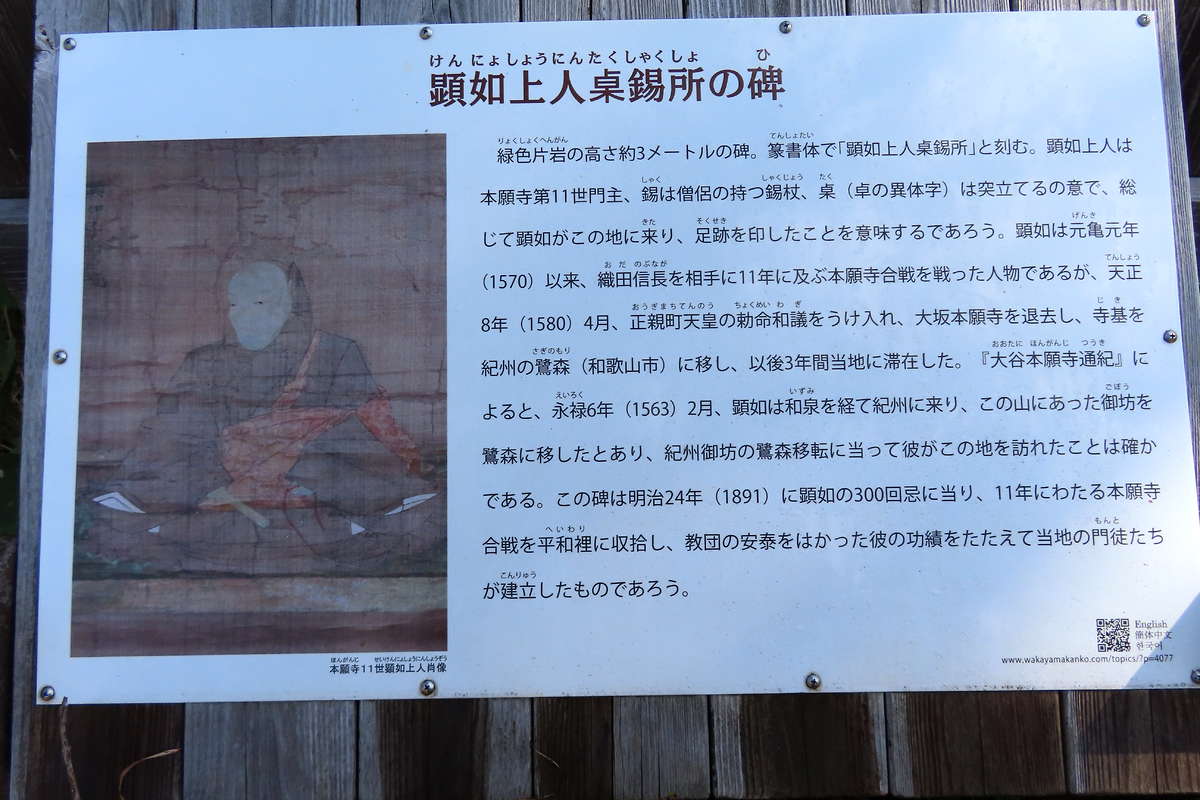 けんにょしょうにんたくしゃくしょ ひ
顕如上人桌錫所の碑
りょくしょくへんがん てんしょたい
緑色片岩の高さ約3メートルの碑。篆書体で「顕如上人桌錫所」と刻む。顕如上人は
しゃく しゃくじょう たく
本願寺第11世門主、錫は僧侶の持つ錫杖、桌（卓の異体字）は突立てるの意で、総
きた そくせき げんき
じて顕如がこの地に来り、足跡を印したことを意味するであろう。顕如は元亀元年
おだ のぶなが てんしょう
（1570）以来、織田信長を相手に11年に及ぶ本願寺合戦を戦った人物であるが、天正
おうぎまちてんのう ちょくめい わ ぎ じき
8年（1580）4月、正親町天皇の勅命和議をうけ入れ、大坂本願寺を退去し、寺基を
さぎのもり おおたに ほんがんじ つうき
紀州の鷺森（和歌山市）に移し、以後3年間当地に滞在した。『大谷本願寺通紀』に
えいろく いずみ ごぼう
よると、永禄6年（1563）2月、顕如は和泉を経て紀州に来り、この山にあった御坊を
鷺森に移したとあり、紀州御坊の鷺森移転に当って彼がこの地を訪れたことは確か
である。この碑は明治24年（1891）に顕如の300回忌に当り、11年にわたる本願寺
へいわり もんと
合戦を平和裡に収拾し、教団の安泰をはかった彼の功績をたたえて当地の門徒たち
こんりゅう
が建立したものであろう。
ほんがんじ せいけんにょしょうにんしょうぞう
本願寺11世顕如上人肖像
English
簡体中文
한국어
www.wakayamakanko.com/topics/?p=4077